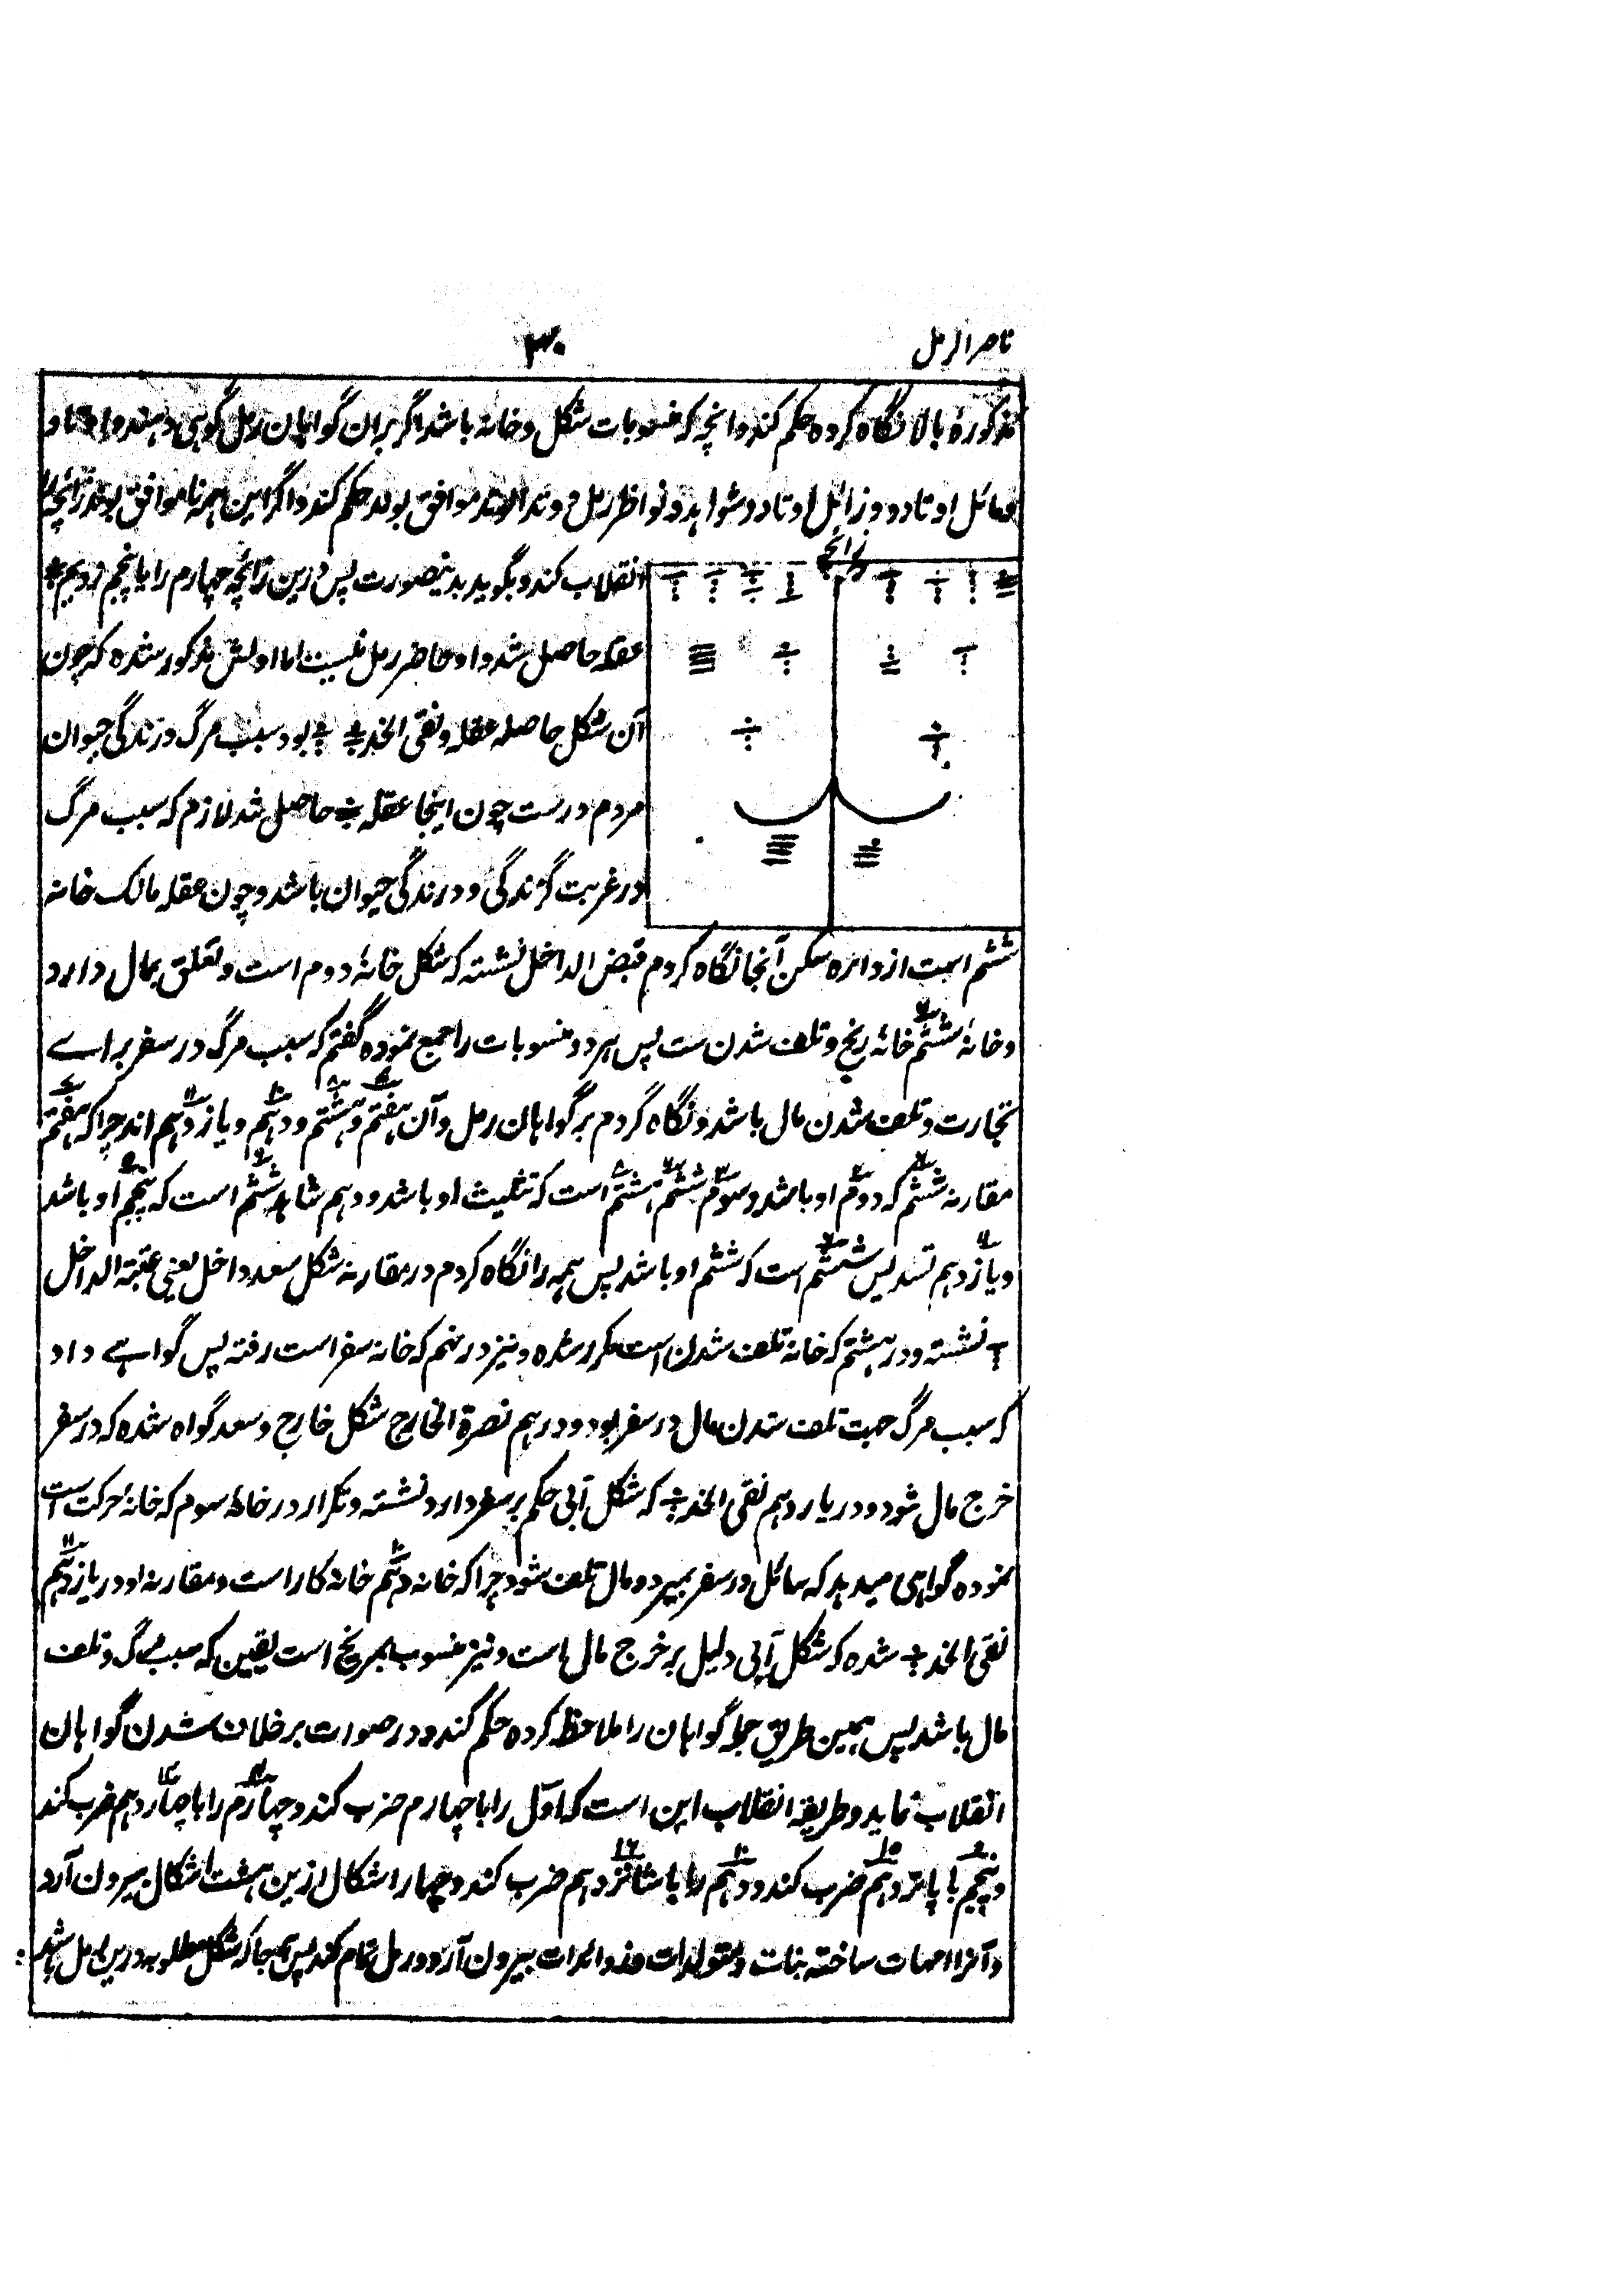 ناصر الرمل
۳۰
مذکورهٔ بالا نگاه کرده حکم کند و انچه که منسوبات شکل و خانه باشد اگر بران گواهان رمل گوهی دهند و اوتاد و
مائل اوتاد و زائل اوتاد و شواهد و نواظر رمل و وتد الوتد موافق بود حکم کند و اگر این همه ناموافق بود زائچه را
زائچه
انقلاب کند و بگوید بدینصورت پس درین زائچه چهارم را با پنجم زدیم
عقله حاصل شد و او حاضر رمل نیست اما اولش مذکور شده که چون
آن شکل حاصله عقله و نقی الخد بود سبب مرگ و زندگی حیوان
مردم درست چون اینجا عقله حاصل شد لازم که سبب مرگ
در غربت گزندگی و درندگی حیوان باشد و چون عقله مالک خانه
ششم است از دائره سکن آنجا نگاه کردم قبض الداخل نشسته که شکل خانهٔ دوم است و تعلق بمال دارد
و خانهٔ ششم خانهٔ رنج و تلف شدن ست پس هر دو منسوبات را جمع نموده گفتم که سبب مرگ در سفر براے
تجارت و تلف شدن مال باشد و نگاه کردم بر گواهان رمل و آن هفتم و هشتم و دهم و یازدهم اند چرا که هفتم
مقارنه ششم که دوم او باشد و سوم ششم هشتم است که تثلیث او باشد و دهم شاهد ششم است که پنجم او باشد
و یازدهم تسدیس ششم است که ششم او باشد پس همه را نگاه کردم در مقارنه شکل سعد داخل یعنی عتبة الداخل
نشسته و در هشتم که خانه تلف شدن است مکرر شده و نیز در نهم که خانه سفر است رفته پس گواهے داد
که سبب مرگ جهت تلف شدن مال در سفر بود و در دهم نصرة الخارج شکل خارج و سعد گواه شده که در سفر
خرج مال شود و در یازدهم نقی الخد که شکل آبی حکم بر سفر دارد نشسته و تکرار در خانهٔ سوم که خانهٔ حرکت است
نموده گواهی میدهد که سائل در سفر بمیرد و مال تلف شود چرا که خانه دهم خانه کار است و مقارنه او در یازدهم
نقی الخد شده که شکل آبی دلیل بر خرج مال است و نیز منسوب بمریخ است یقین که سبب مرگ و تلف
مال باشد پس بهمین طریق جمله گواهان را ملاحظه کرده حکم کند و در صورت برخلاف شدن گواهان
انقلاب نماید و طریقه انقلاب این است که اول را با چهارم ضرب کند و چهارم را با چهاردهم ضرب کند
و پنجم با پانزدهم ضرب کند و دهم را با شانزدهم ضرب کند و چهار اشکال ازین هشت اشکال بیرون آرد
و آنرا امهات ساخته بنات و متولدات و زوائدات بیرون آرد و رمل تمام کند پس هر جا که شکل مطلوبه درین رمل باشد